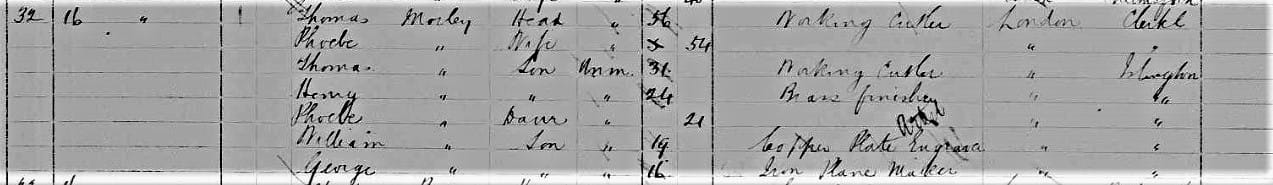 32 16 " 1 Thomas Mosley Head " 56 Working Cutler London Clerkl
Phoebe " Wife " 54 " "
Thomas " Son Unm 31 Working Cutler " Islington
Henry " " " 24 Brass finisher " "
Phoebe " Daur " 21 " "
William " Son " 19 Copper Plate Engraver " "
George " " " 16 Iron Plane Maker " "